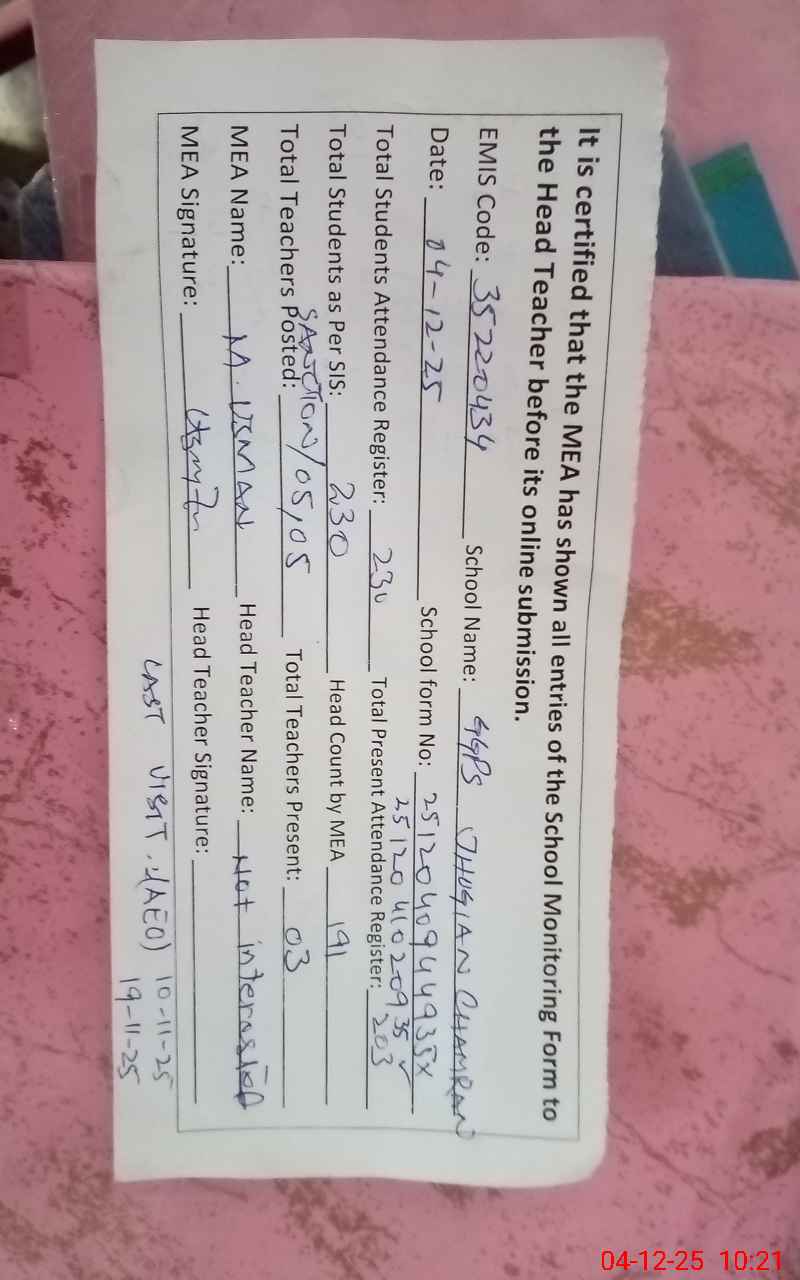 It is certified that the MEA has shown all entries of the School Monitoring Form to
the Head Teacher before its online submission.
EMIS Code: 35220434 School Name: GGPS JHUGIAN CHAMRAN
Date: 04-12-25 School form No: 25120409444935x
2512041020935 ✓
Total Students Attendance Register: 230 Total Present Attendance Register: 203
Total Students as Per SIS: 230 Head Count by MEA 191
Total Teachers Posted: SANCTION/05,05 Total Teachers Present: 03
MEA Name: M. USMAN Head Teacher Name: Not interested
MEA Signature: Head Teacher Signature:
LAST VISIT. (AEO) 10-11-25
19-11-25
04-12-25 10:21